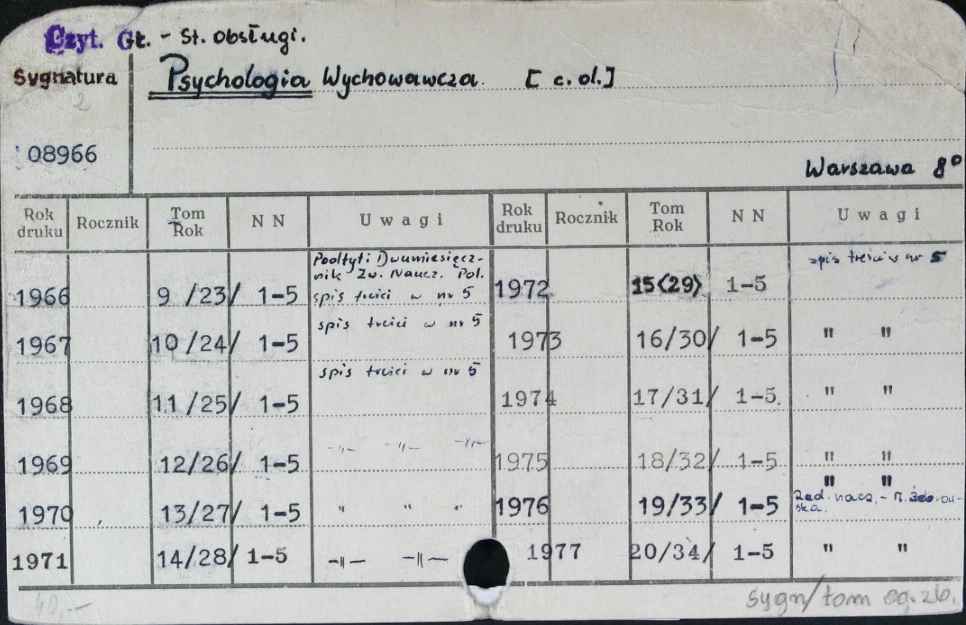 Czyt. Gł. - St. obsługi.
Sygnatura
Psychologia Wychowawcza. [c. ol.]
2
08966
Warszawa 8°
Rok druku Rocznik Tom Rok NN Uwagi Rok druku Rocznik Tom Rok NN Uwagi
1966 9 /23/ 1-5 Podtyt: Dwumiesięcz-
nik Zw. Naucz. Pol.
spis treści w nr 5
1972 15<29> 1-5 spis treści w nr 5
1967 10 /24/ 1-5 spis treści w nr 5
1973 16/30/ 1-5 " "
1968 11 /25/ 1-5 spis treści w nr 5
1974 17/31/ 1-5. " "
1969 12/26/ 1-5 -"- -"- -"-
1975 18/32/ 1-5 " "
1970 13/27/ 1-5 " " "
1976 19/33/ 1-5 " "
Red. nacz. -
ska.
1971 14/28/ 1-5 -"- -"-
1977 20/34/ 1-5 " "
40,-
sygn/tom og. zb.